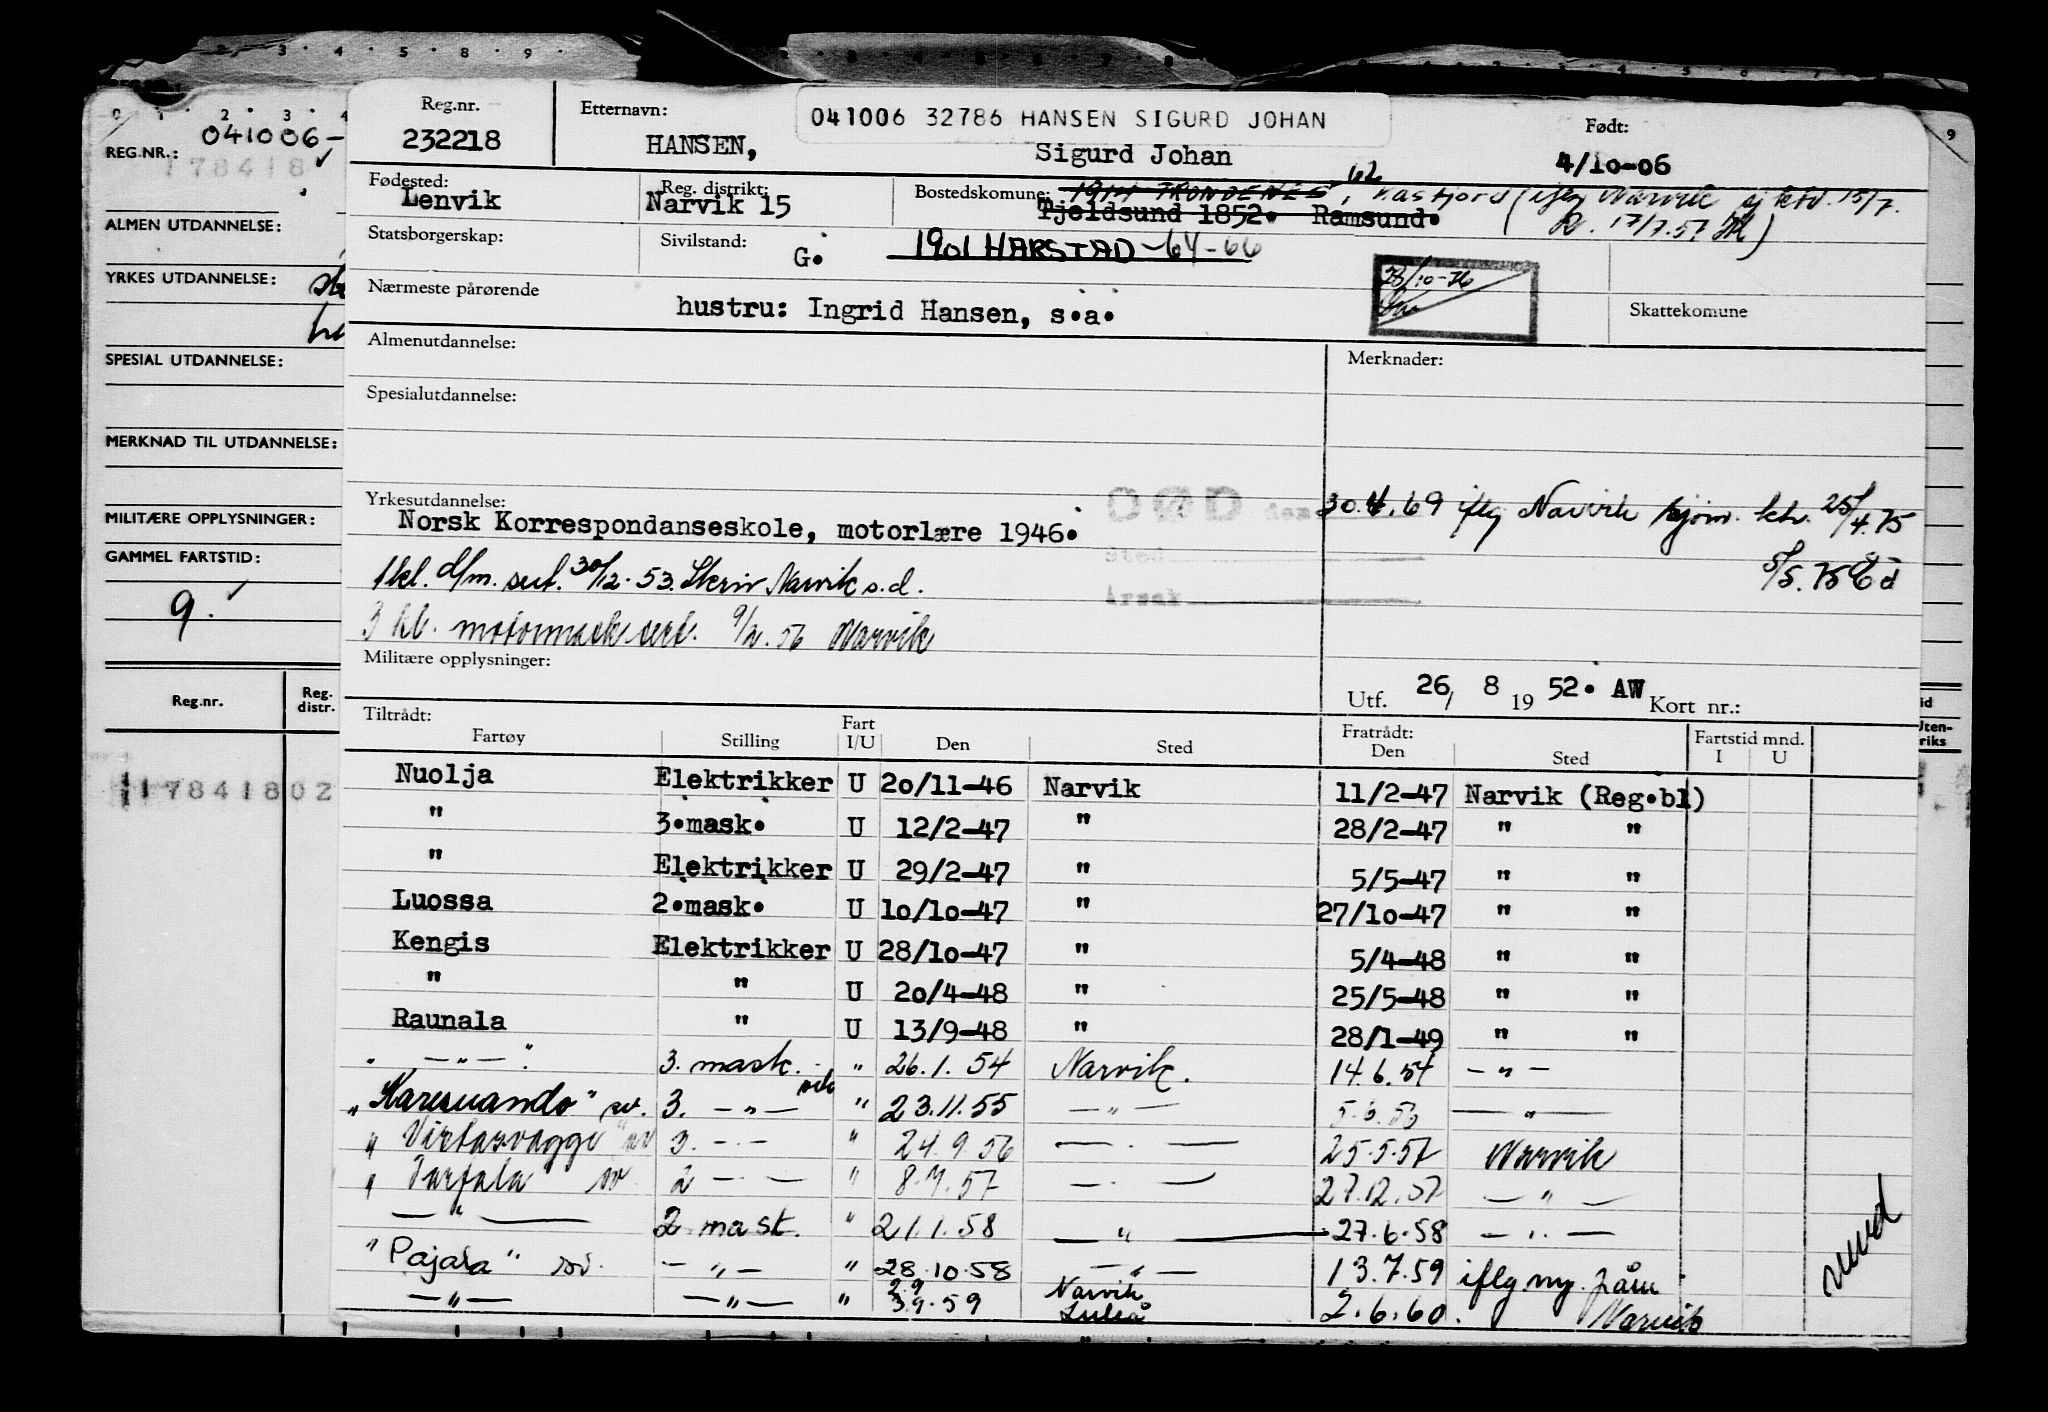 041006-
REG.NR.: 178418
ALMEN UTDANNELSE:
YRKES UTDANNELSE:
SPESIAL UTDANNELSE:
MERKNAD TIL UTDANNELSE:
MILITÆRE OPPLYSNINGER:
GAMMEL FARTSTID:
9.
Reg.nr. Reg. distr.
17841802
Reg.nr. Etternavn: 041006 32786 HANSEN SIGURD JOHAN Født:
232218 HANSEN, Sigurd Johan 4/10-06
Fødested: Reg. distrikt: Bostedskomune: 1914 TRONDENES, 62 Kasfjord (iflg Narvik sj ktr. 15/7.
Lenvik Narvik 15 Tjeldsund 1852. Ramsund. 17/7.57
Statsborgerskap: Sivilstand: G. 1901 HARSTAD -64-66
28/10-76
Nærmeste pårørende hustru: Ingrid Hansen, s.a. Skattekomune
Almenutdannelse: Merknader:
Spesialutdannelse:
Yrkesutdannelse: DØD den 30.4.69 iflg Narvik sjøm. ktr. 25/4.75
Norsk Korrespondanseskole, motorlære 1946.
Sted 5/5.75
1kl. d/m. sert. 30/12.53. Skriv Narvik s.d.
Årsak
3 kl. motormask sert. 9/2.56 Narvik
Militære opplysninger: Utf. 26/ 8 19 52. AW Kort nr.:
Tiltrådt: Fratrådt: Fartstid mnd.
Fartøy Stilling Fart I/U Den Sted Den Sted I U
Nuolja Elektrikker U 20/11-46 Narvik 11/2-47 Narvik (Reg.bl)
" 3.mask. U 12/2-47 " 28/2-47 " "
" Elektrikker U 29/2-47 " 5/5-47 " "
Luossa 2.mask. U 10/10-47 " 27/10-47 " "
Kengis Elektrikker U 28/10-47 " 5/4-48 " "
" " U 20/4-48 " 25/5-48 " "
Raunala " U 13/9-48 " 28/1-49 " "
" — " — " 3. mask. " 26.1.54 Narvik. 14.6.54 — " —
"Karesuando" sv. 3. — " — " 23.11.55 — " — 5.6.56 — " —
" Virtasvaggi" sv 3. — " — " 24.9.56 — " — 25.5.57 Narvik
" Tarfala sv 2 — " — " 8.7.57 — " — 27.12.57 — " —
— " — 2 mask. " 21.1.58 — " — 27.6.58 — " —
"Pajala" sv. — " — " 28.10.58 — " — 13.7.59 iflg. my. påm
— " — — " — " 2.9 3.9.59 Narvik Luleå 2.6.60. Narvik